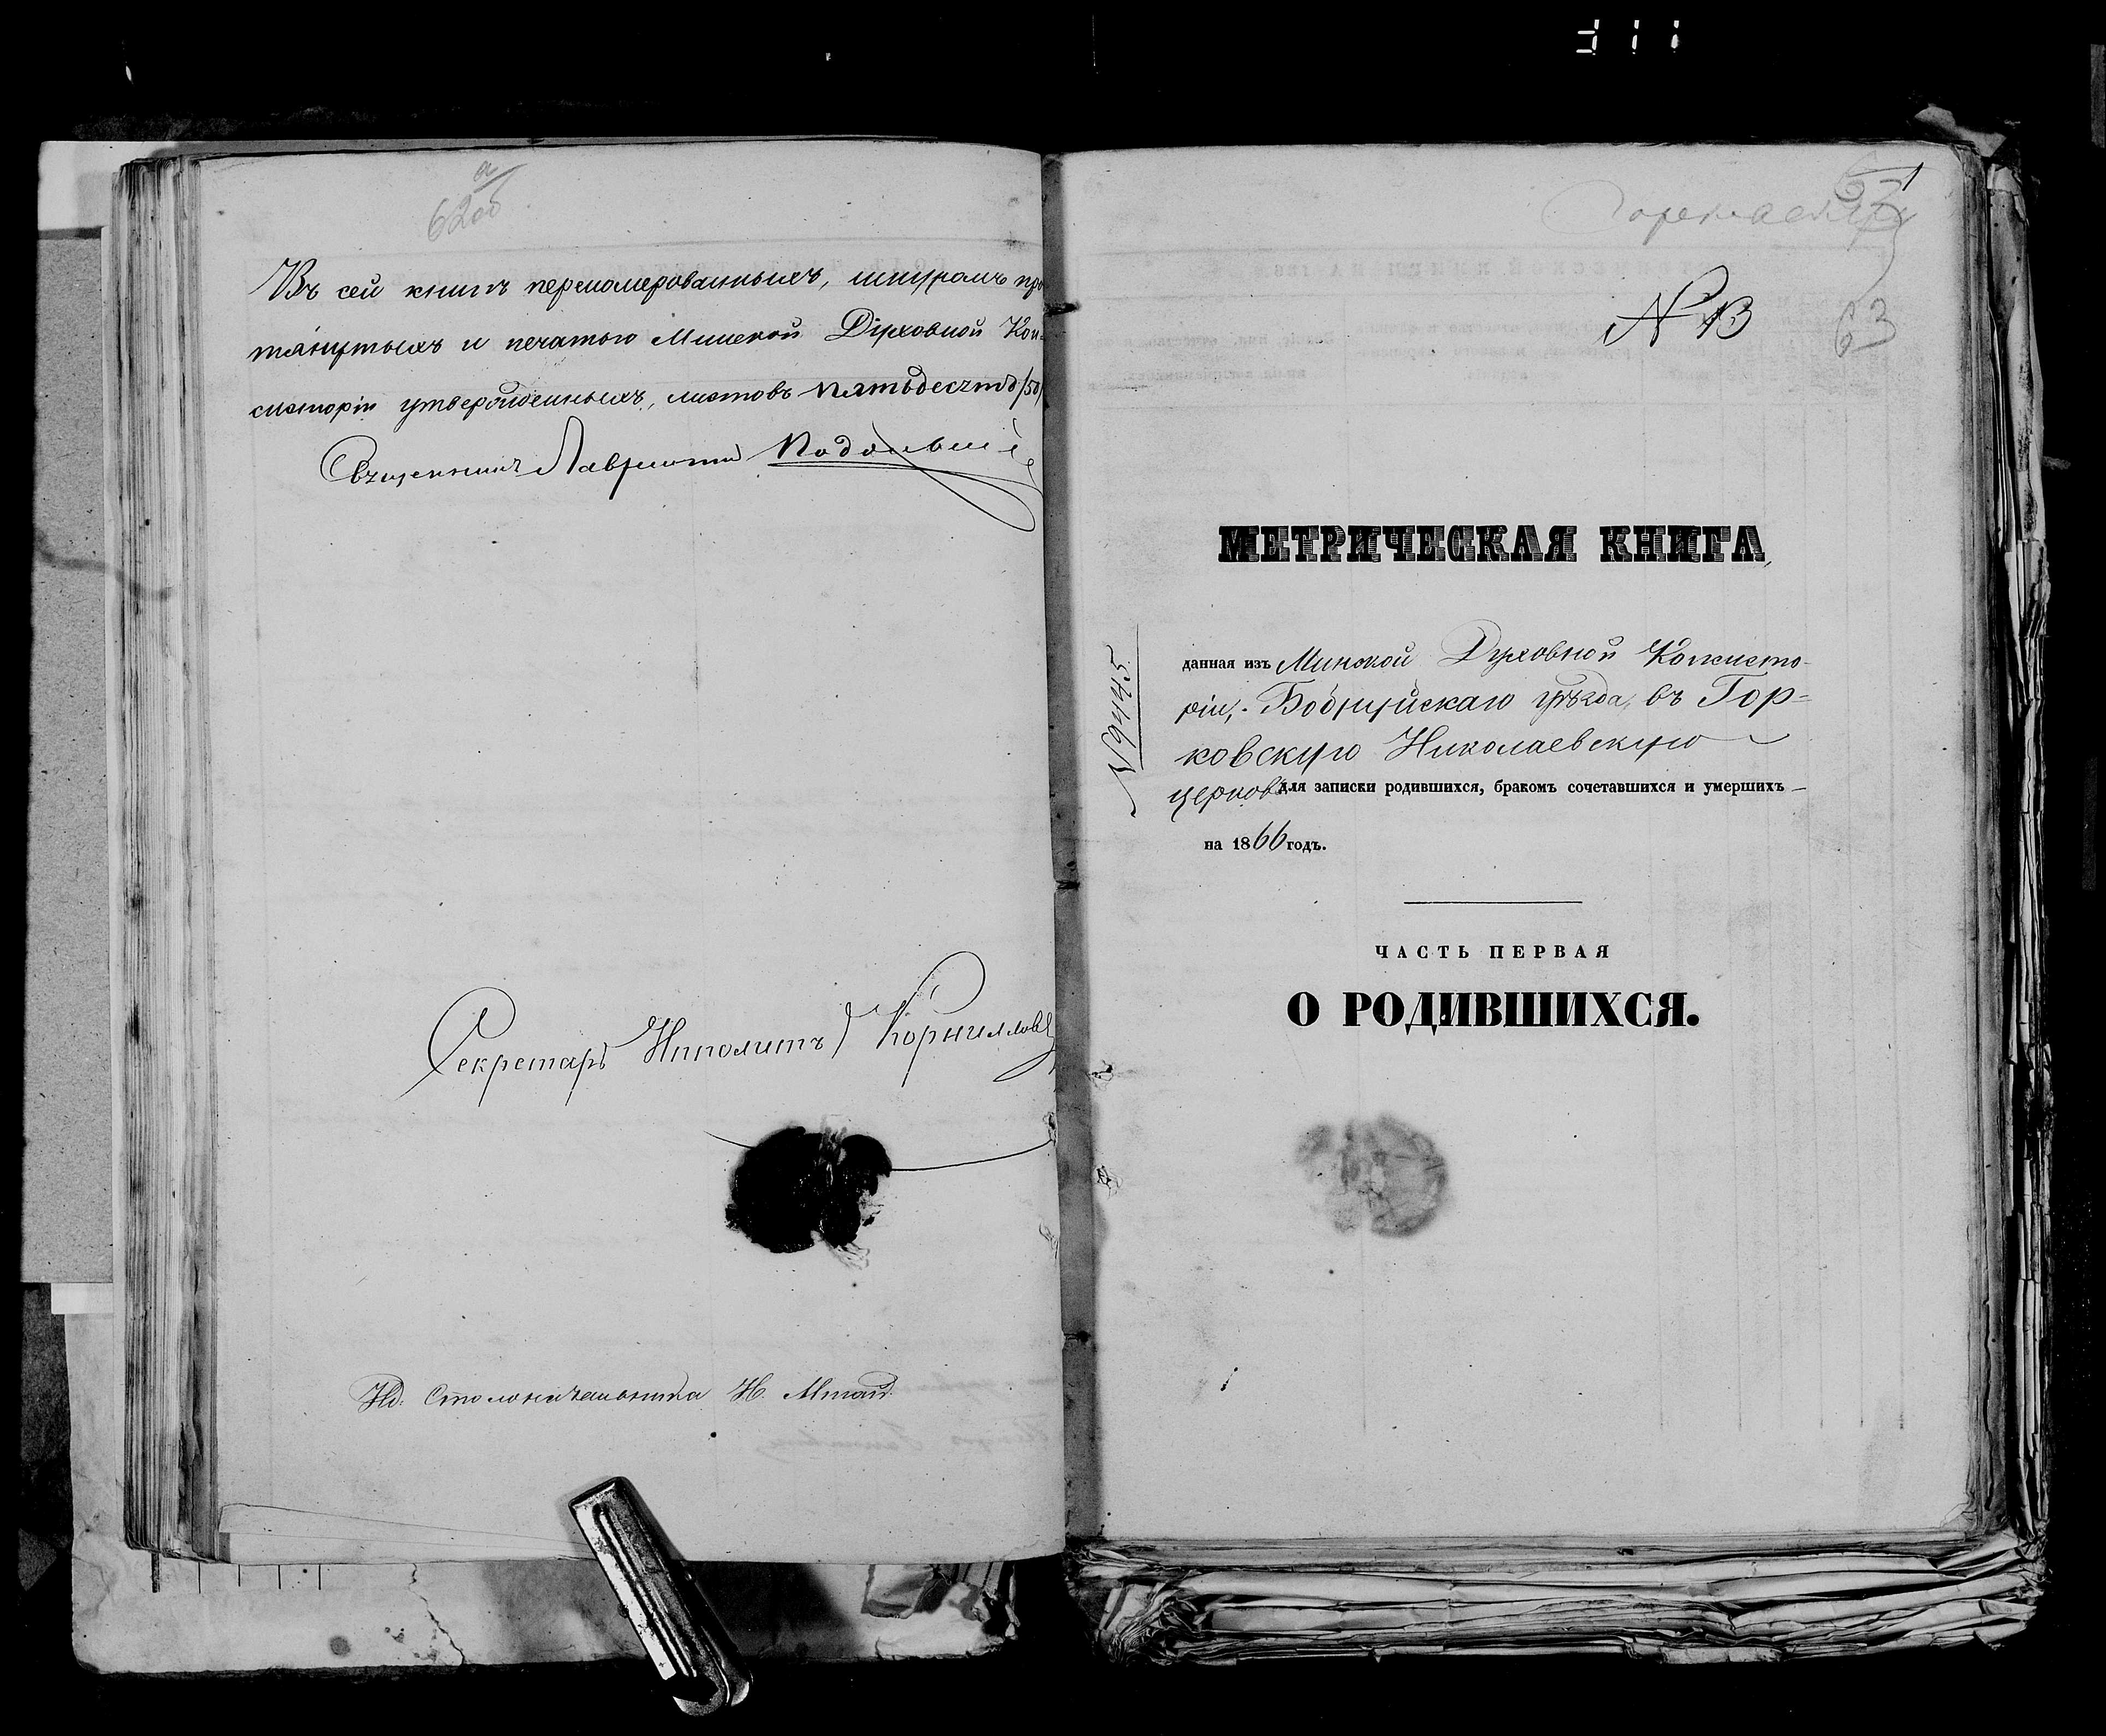 62об
Въ сей книгѣ перномерованныхъ, шнуромъ про
тянутыхъ и печатью Минской Духовной Кон-
систоріи утвержденныхъ, листовъ пятьдесятъ /50/
Священникъ Лаврентій
Секретарь Ипполитъ Корниллов
Ид. Столоначальника Н.
1
№ 13
63
МЕТРИЧЕСКАЯ КНИГА,
№ 9445
данная изъ Минской Духовной Консисто-
ріи, Бобруйскаго уѣзда, въ Гор=
ковскую Николаевскую
церковь для записки родившихся, бракомъ сочетавшихся и умершихъ
на 1866 годъ.
ЧАСТЬ ПЕРВАЯ
О РОДИВШИХСЯ.